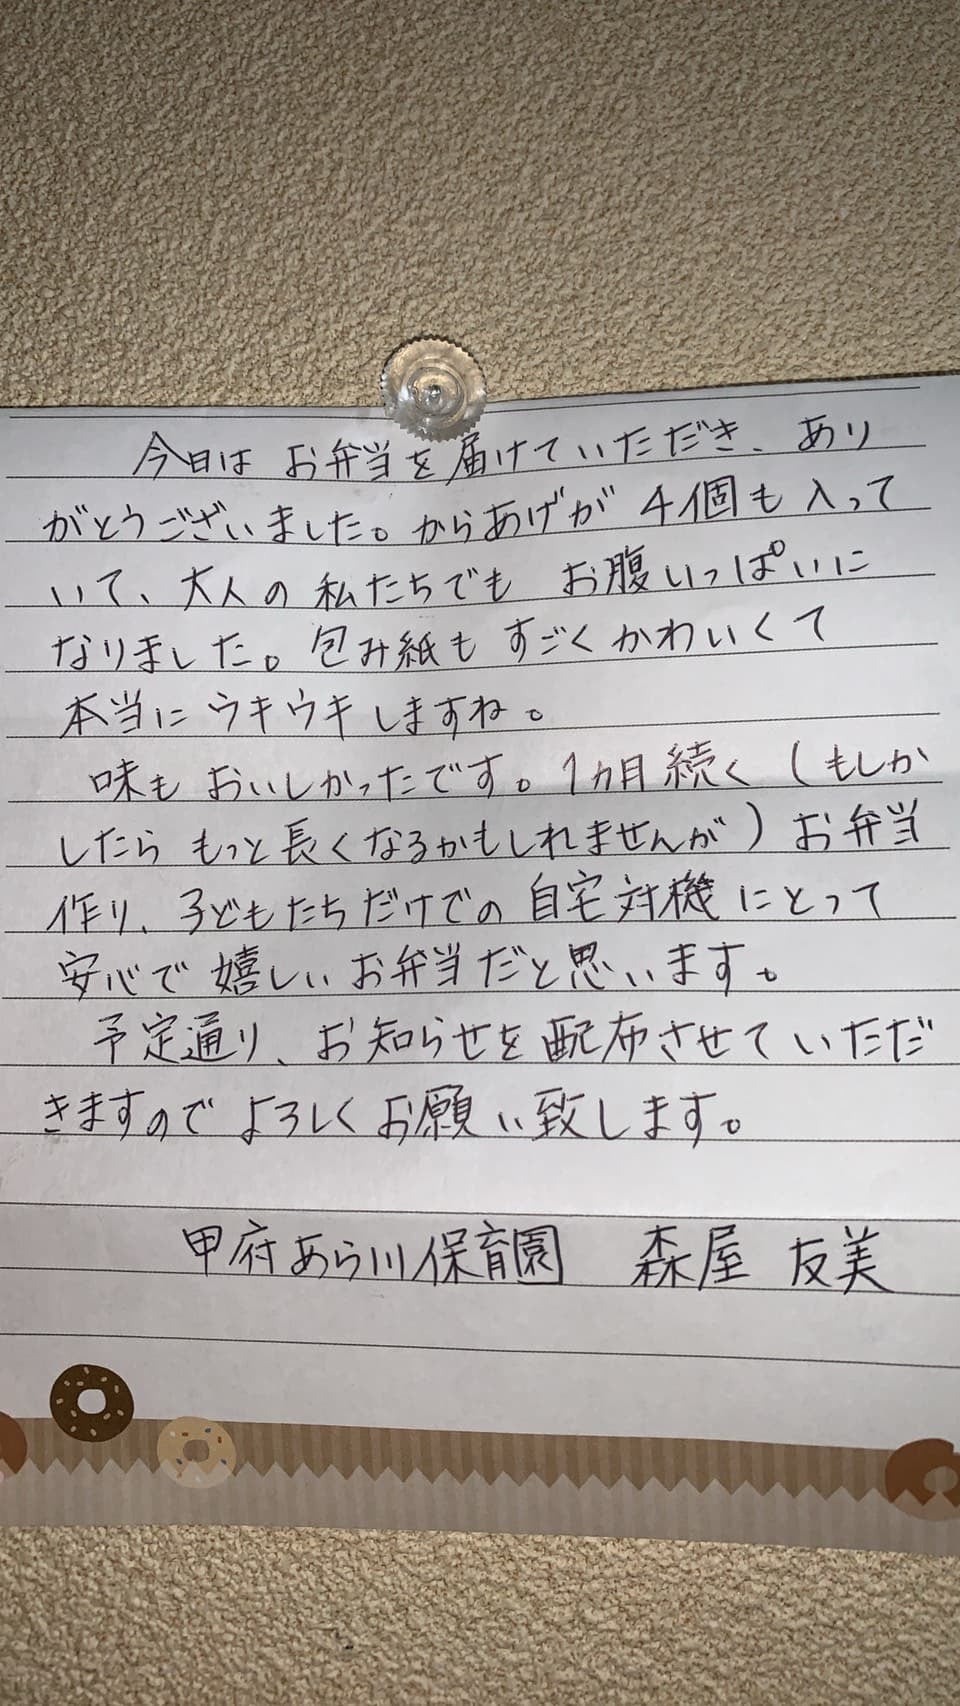 今日は お弁当を届けていただき、あり
がとうございました。からあげが 4個も入って
いて、大人の私たちでも お腹いっぱいに
なりました。包み紙も すごくかわいくて
本当に ウキウキしますね。
味も おいしかったです。1ヵ月続く（もしか
したら もっと長くなるかもしれませんが）お弁当
作り、子どもたちだけでの 自宅対機にとって
安心で 嬉しいお弁当だと思います。
予定通り、お知らせを 配布させていただ
きますので よろしくお願い致します。
甲府あら川保育園 森屋 友美